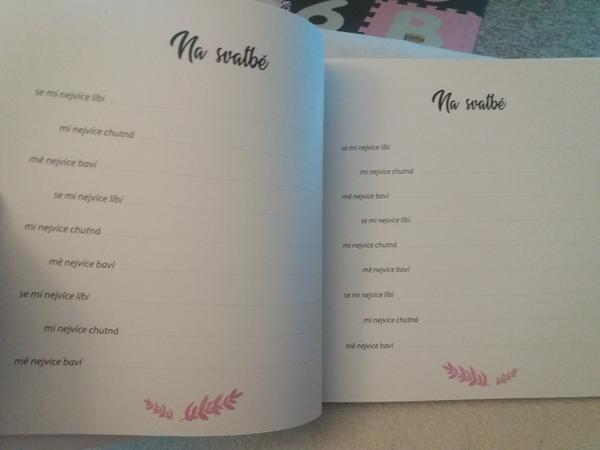 6 B
Na svatbě
se mi nejvíce líbí
mi nejvíce chutná
mě nejvíce baví
se mi nejvíce líbí
mi nejvíce chutná
mě nejvíce baví
se mi nejvíce líbí
mi nejvíce chutná
mě nejvíce baví
Na svatbě
se mi nejvíce líbí
mi nejvíce chutná
mě nejvíce baví
se mi nejvíce líbí
mi nejvíce chutná
mě nejvíce baví
se mi nejvíce líbí
mi nejvíce chutná
mě nejvíce baví